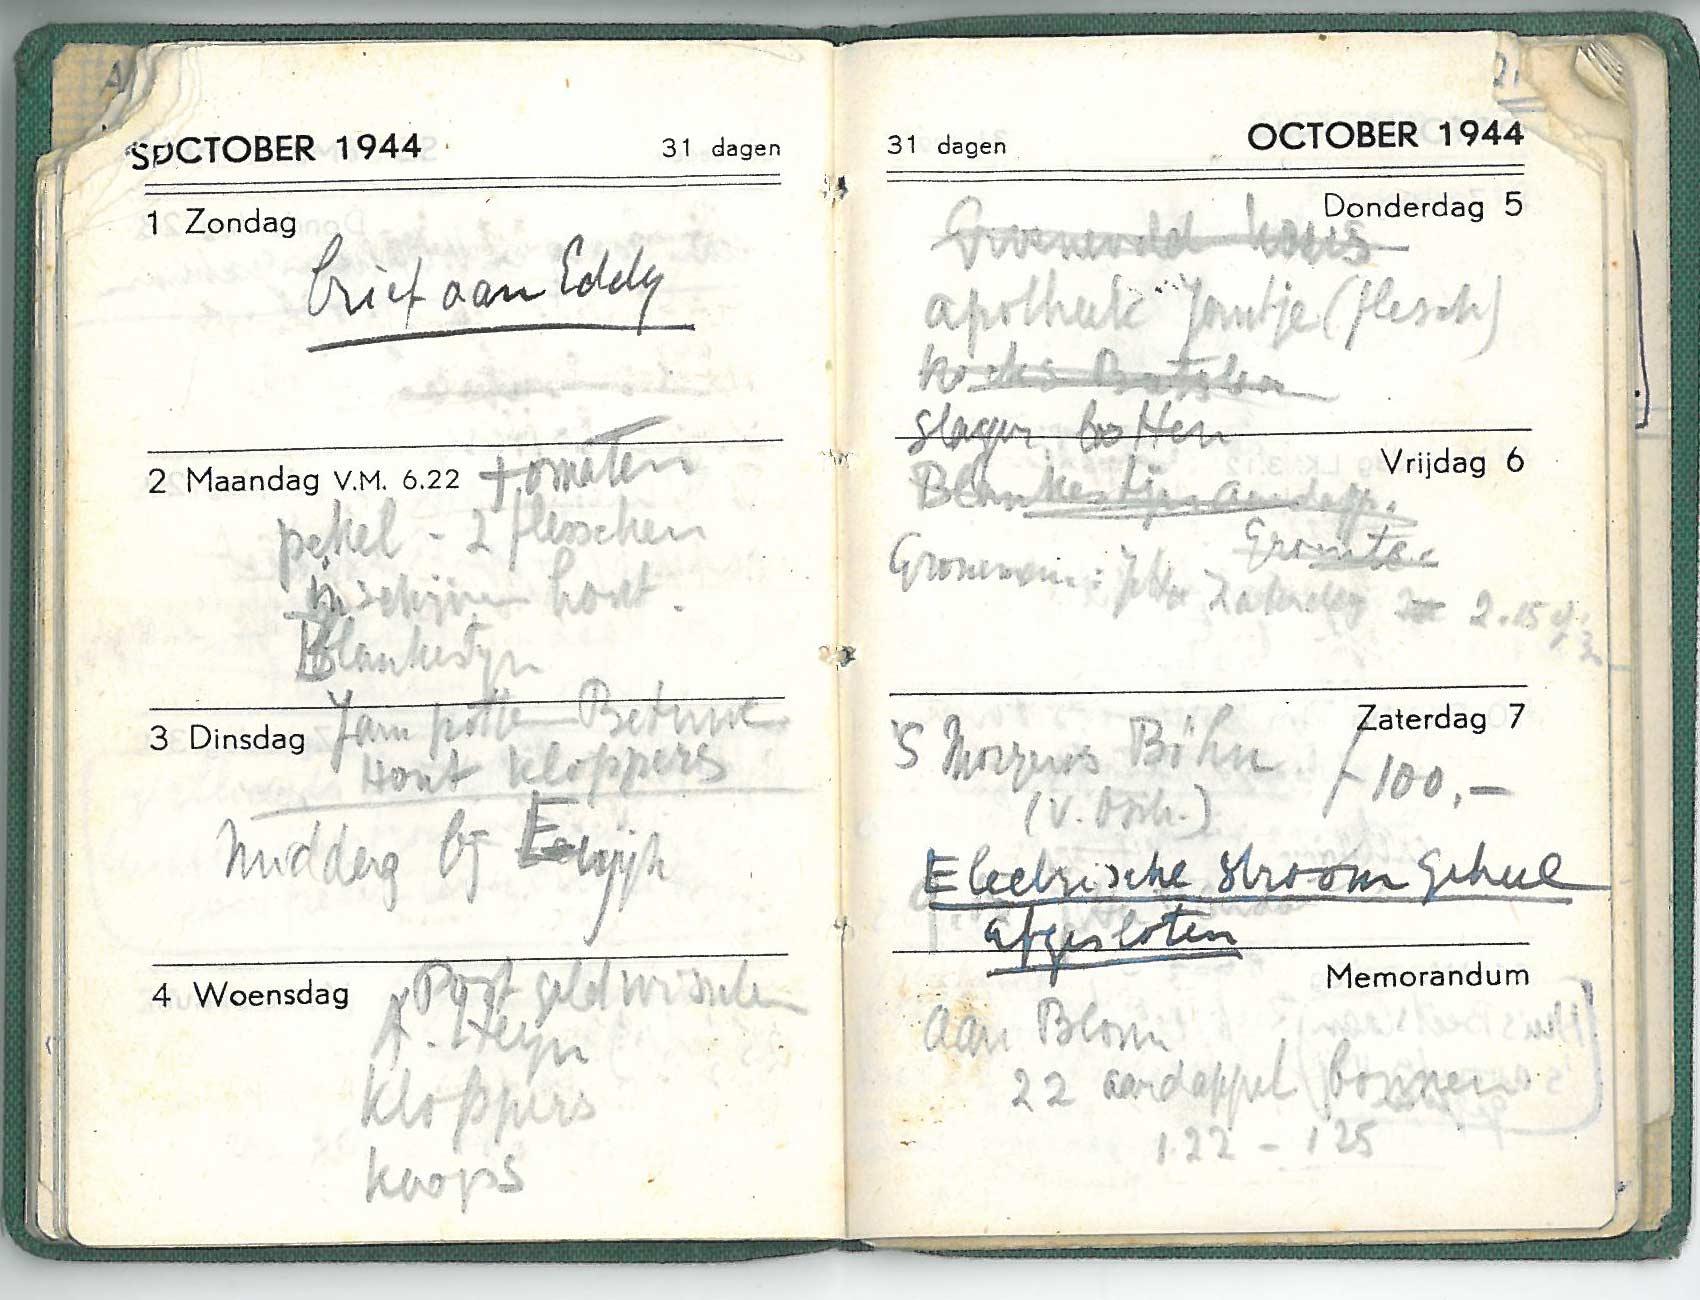 OCTOBER 1944
31 dagen
1 Zondag
brief aan Eddy
2 Maandag V.M. 6.22
tomaten
pekel - 2 flesschen
hout.
Blankestijn
3 Dinsdag
Jam potten Betuwe
Hout kloppers
middag bij Ewijk
4 Woensdag
Post geld wisselen
Heyn
kloppers
koops
31 dagen
OCTOBER 1944
Donderdag 5
Groeneveld
apotheek (flesch)
slager botten
Vrijdag 6
Blankestijn aardapp.
Groente
Zaterdag 2.15
Zaterdag 7
's Morgens Böhn f 100,—
Electrische stroom geheel
afgesloten
Memorandum
aan Blom
22 aardappel bonnen
122 - 125